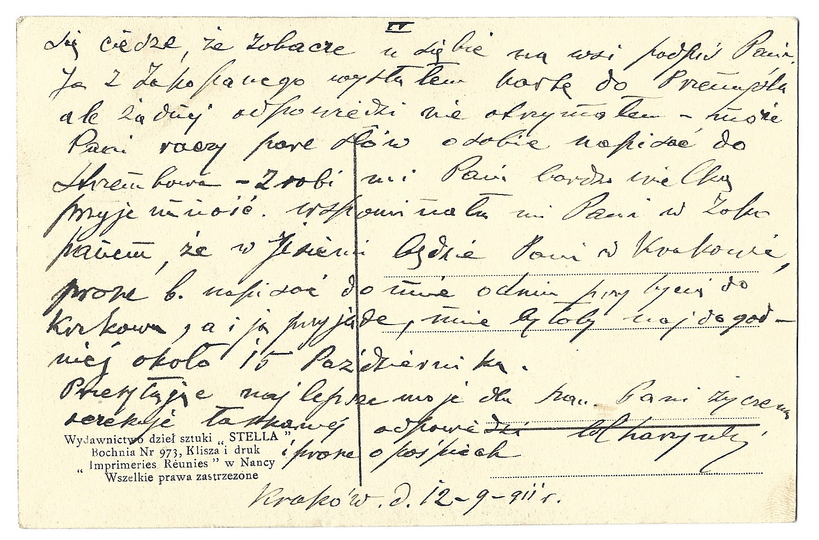 II
się cieszę, że zobaczę u siebie na wsi podpis Pani.
Ja z Zakopanego wysłałem kartę do Przemyśla
ale żadnej odpowiedzi nie otrzymałem – może
Pani raczy parę słów o sobie napisać do
– Zrobi mi Pani bardzo wielką
przyjemność. Wspominała mi Pani w Zako
panem, że w Jesieni będzie Pani w Krakowie,
proszę b. napisać do mnie o dniu przybycia do
Krakowa, a i ja przyjadę, mnie byłoby najdogod–
niej około 15 Października.
Przesyłając najlepsze moje dla Pani życzenia
oczekuję łaskawej odpowiedzi
i proszę o pośpiech
Kraków. d. 12–9–911 r.
Wydawnictwo dzieł sztuki „STELLA”
Bochnia Nr 973, Klisza i druk
„Imprimeries Réunies” w Nancy
Wszelkie prawa zastrzeżone